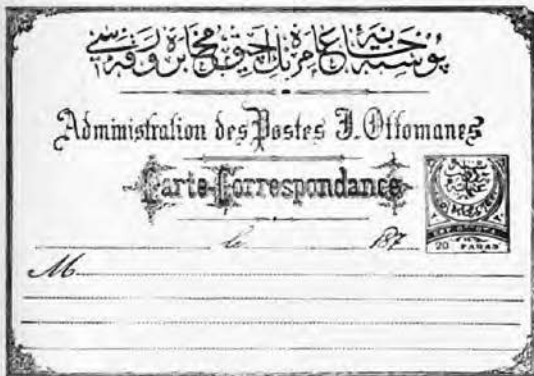 پوسته خانۀ عامره نك اچیق مخابره ورقه سی
Administration des Postes I. Ottomanes
Carte Correspondance
le 187
20 PARAS
M